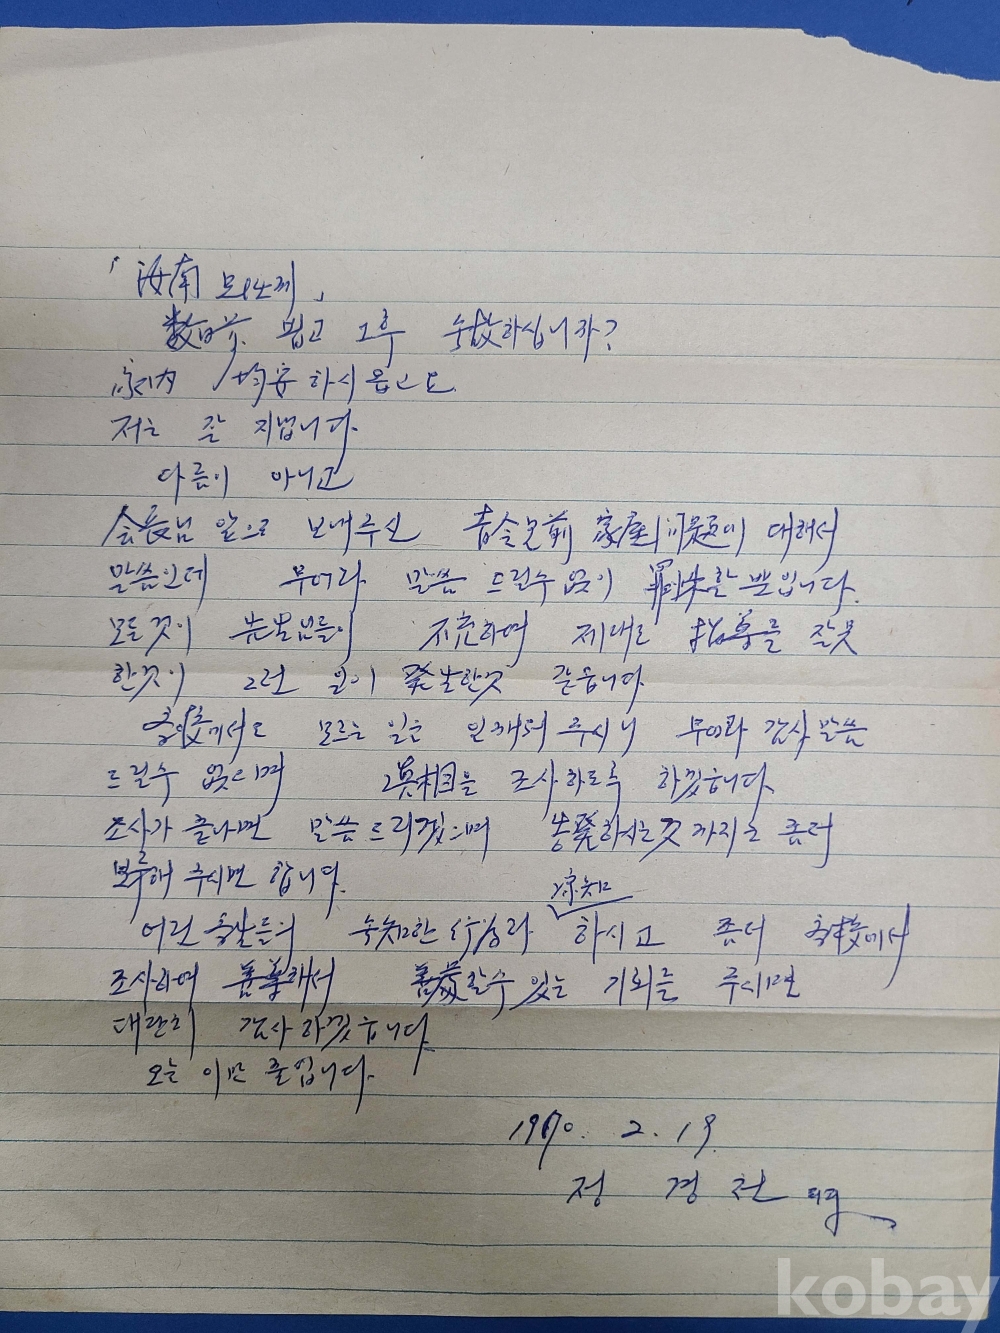 「海南 모산께」
数日前. 뵙고 그후 하십니까?
家内 均安하시옵고도
저는 잘 지냅니다.
다름이 아니고
会長님 앞으로 보내주신 問題에 대해서
말씀인데 무어라 말씀 드릴수 없이 罪悚할 뿐입니다.
모든것이 先生님들이 不充하여 제대로 指導를 잘못
한것이 그런 일이 発生한것 같읍니다.
学校에서도 모르는 일은 일깨워 주시니 무어라 감사 말씀
드릴수 없으며 그 眞相을 조사하도록 하겠습니다.
조사가 끝나면 말씀드리겠으며 告発하시는것 까지는 좀더
보류해 주시면 합니다.
어린 学生들의 한 行爲라 諒知 하시고 좀더 学校에서
조사하여 善導해서 할수 있는 기회를 주시면
대단히 감사하겠읍니다.
오늘 이만 줄입니다.
1970. 2. 19.
정 경 천
kobay